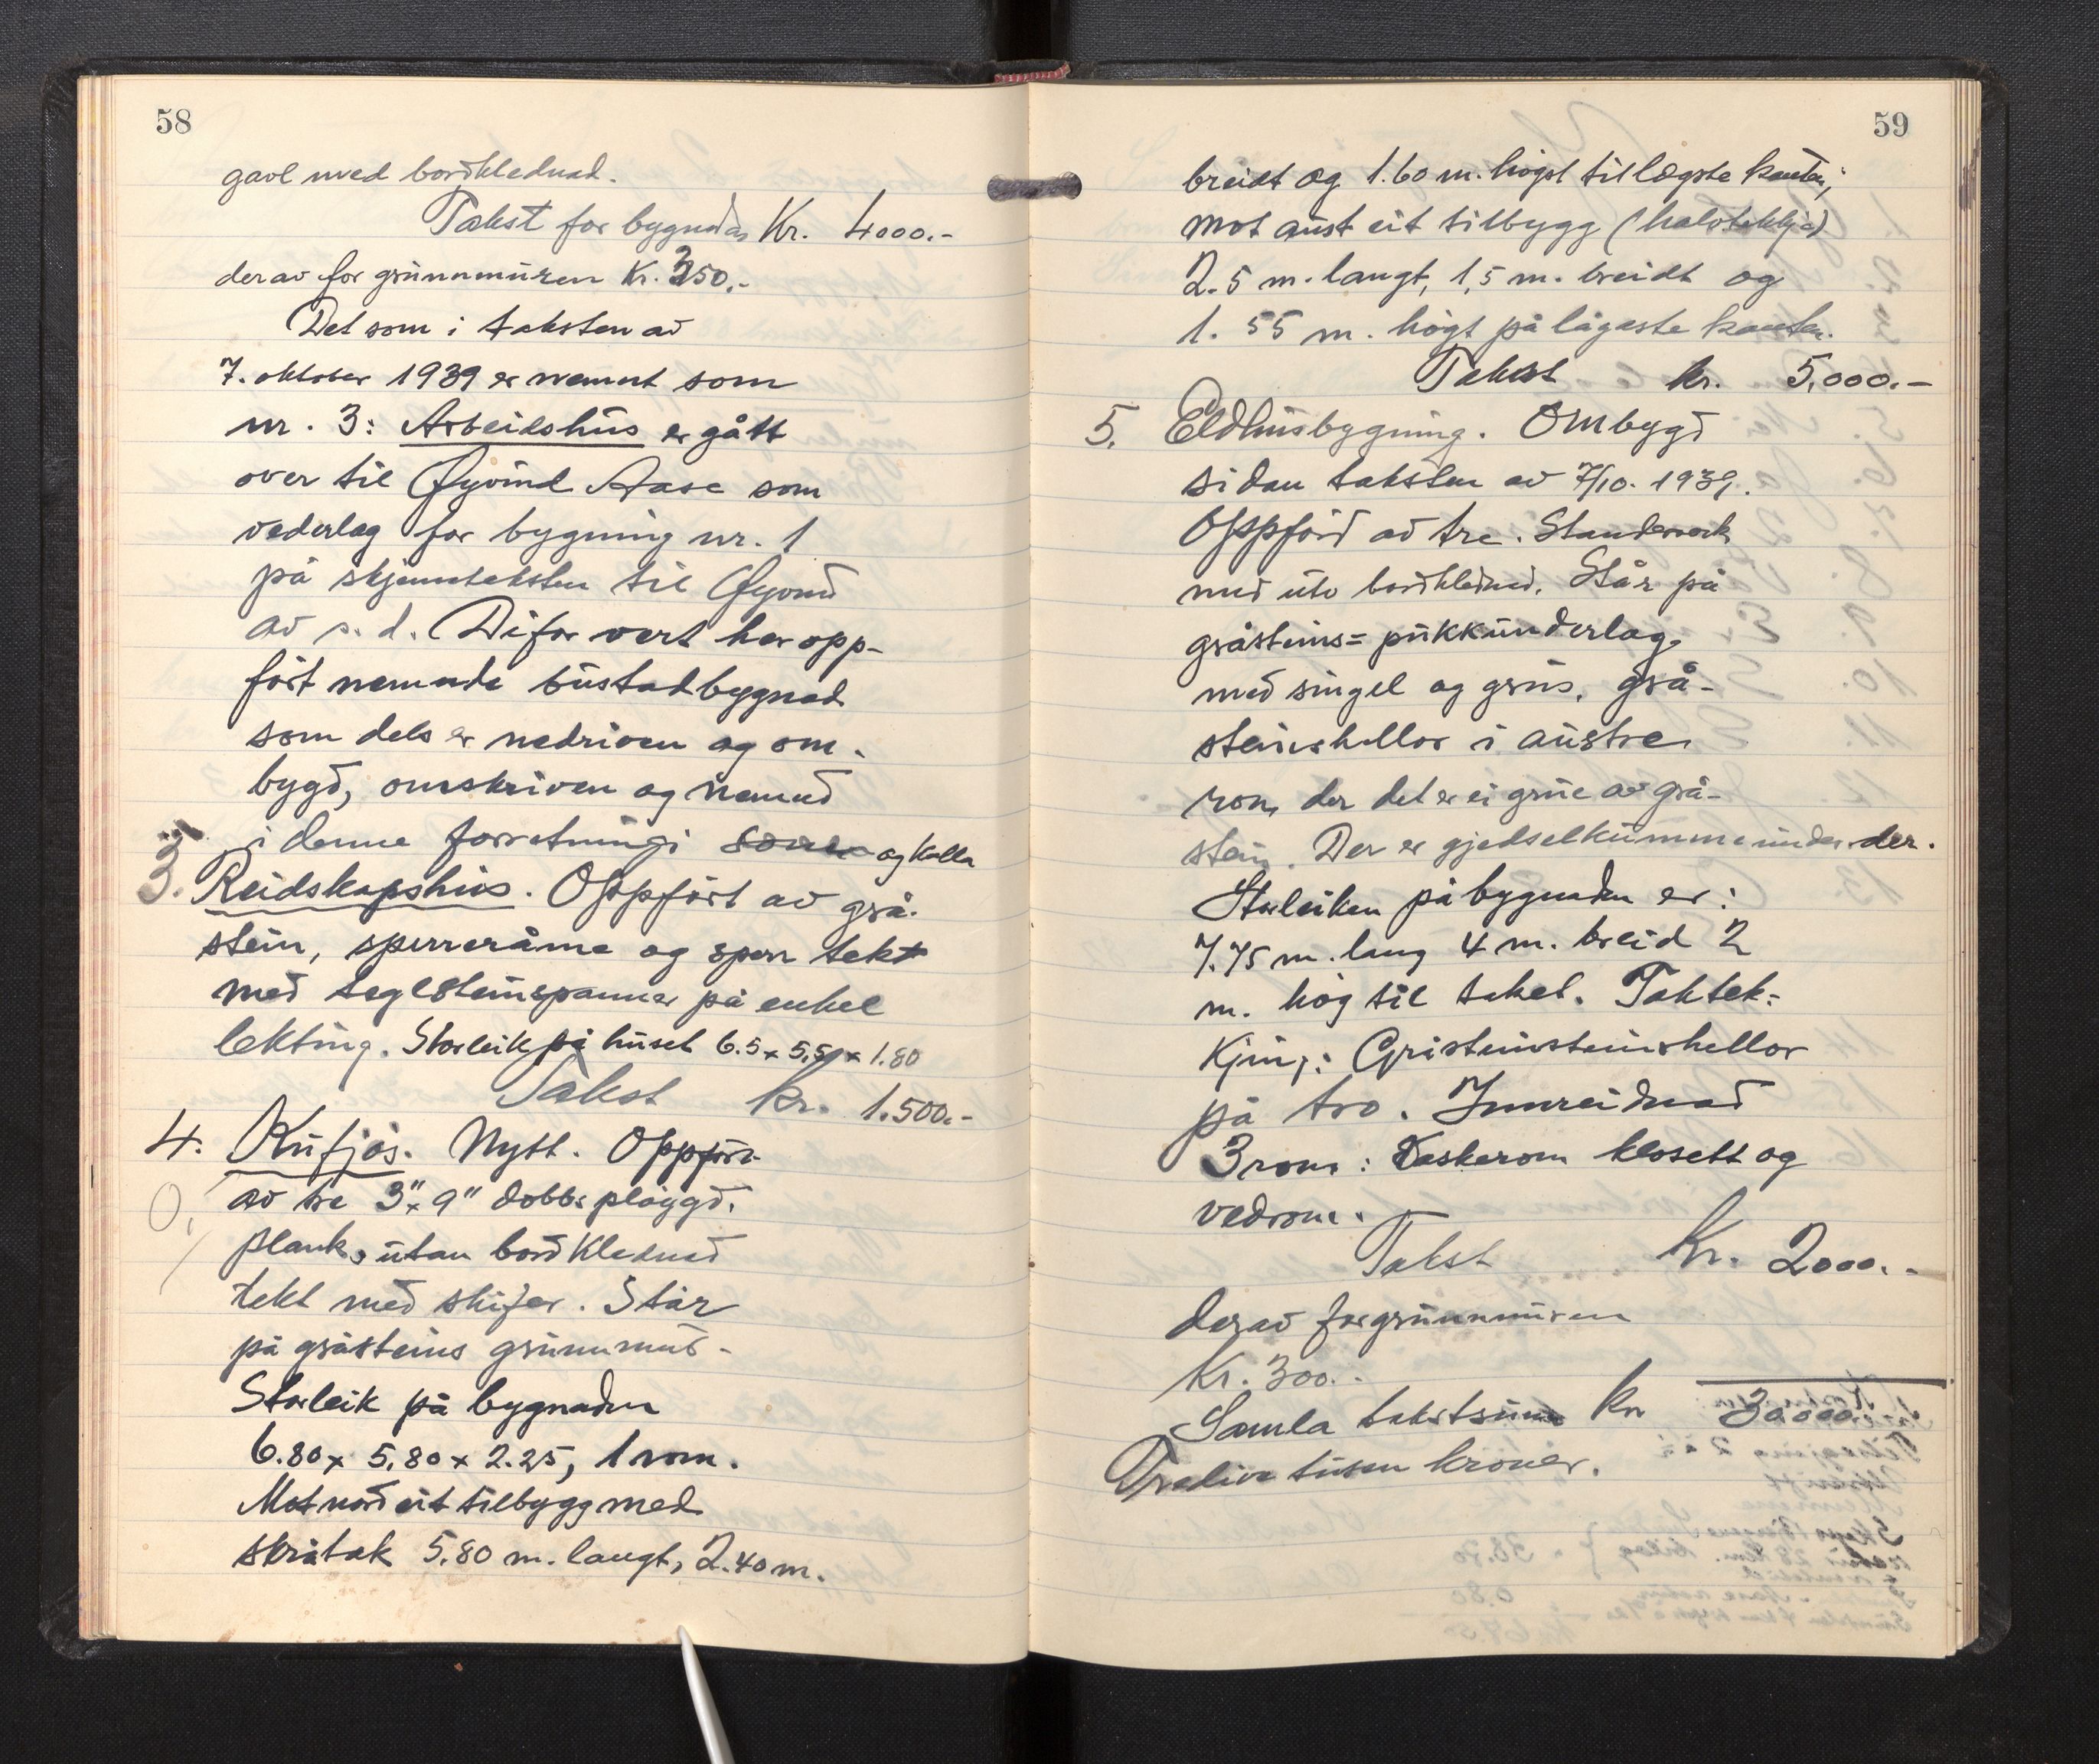 58
gavl med bordklednad.
Takst for bygnaden Kr. 4000.-
derav for grunnmuren Kr. 350.-
Det som i taksten av
7. oktober 1939 er nemnt som
nr. 3: Arbeidshus er gått
over til Øyvind Aase som
vederlag for bygning nr. 1
på skjønntaksten til Øyvind
av s. d. Difor vert her opp-
ført nemnde bustadbygnad
som dels er nedriven og om-
bygd, omskriven og nemnd
i denne forretningi som og kalla
3. Reidskapshus. Oppført av grå-
stein, sperreråme og sperr tekt
med teglsteinspanner på enkel
lekting. Storleik på huset 6.5 x 5,50 x 1.80
Takst kr. 1.500.-
4. Kufjøs. Nytt. Oppført
av tre 3" x 9" dobb. pløygd.
plank, utan bordklednad
tekt med skifer. Står
på gråsteins grunnmur -
Storleik på bygnaden
6.80 x 5.80 x 2.25, 1 rom.
Mot nord eit tilbygg med
skråtak 5.80 m. langt, 2.40 m.
59
breidt og 1.60 m. høgst til lægste kanten;
mot aust eit tilbygg (halvtekkja)
2.5 m. langt, 1,5 m. breidt og
1.55 m. høgt på lågaste kanten.
Takst kr. 5.000.-
5. Eldhusbygning. Ombygd
sidan taksten av 7/10. 1939.
Oppførd av tre. Standerverk
med utv bordkledned. Står på
gråsteins= pukkunderlag
med singel og grus, grå-
steinshellor i austre
rom, der det er ei grue av grå-
stein. Der er gjødselkumme under der.
Storleiken på bygnaden er:
7.75 m. lang 4 m. breid 2
m. høg til taket. Taktek=
kjing: Gråsteinsteinshellor
på tro. Innreidnad
3 rom: Vaskerom klosett og
vedrom.
Takst Kr. 2000.-
derav for grunnmuren
Kr. 300.-
Samla takstsum kr 30.000.-
Tredive tusen kroner.